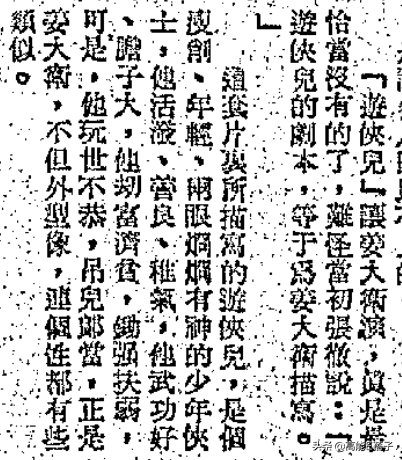 『遊俠兒』讓姜大衛演，真是最
恰當沒有的了，難怪當初張徹說：「
遊俠兒的劇本，等于爲姜大衛描寫。
」
這套片裏所描寫的遊俠兒，是個
瘦削、年輕、兩眼烱烱有神的少年俠
士，他活潑、善良、稚氣，他武功好
、膽子大，他刼富濟貧，鋤强扶弱，
可是，他玩世不恭，吊兒郎當，正是
姜大衛，不但外型像，連個性都有些
類似。
头条 @高能电羞子